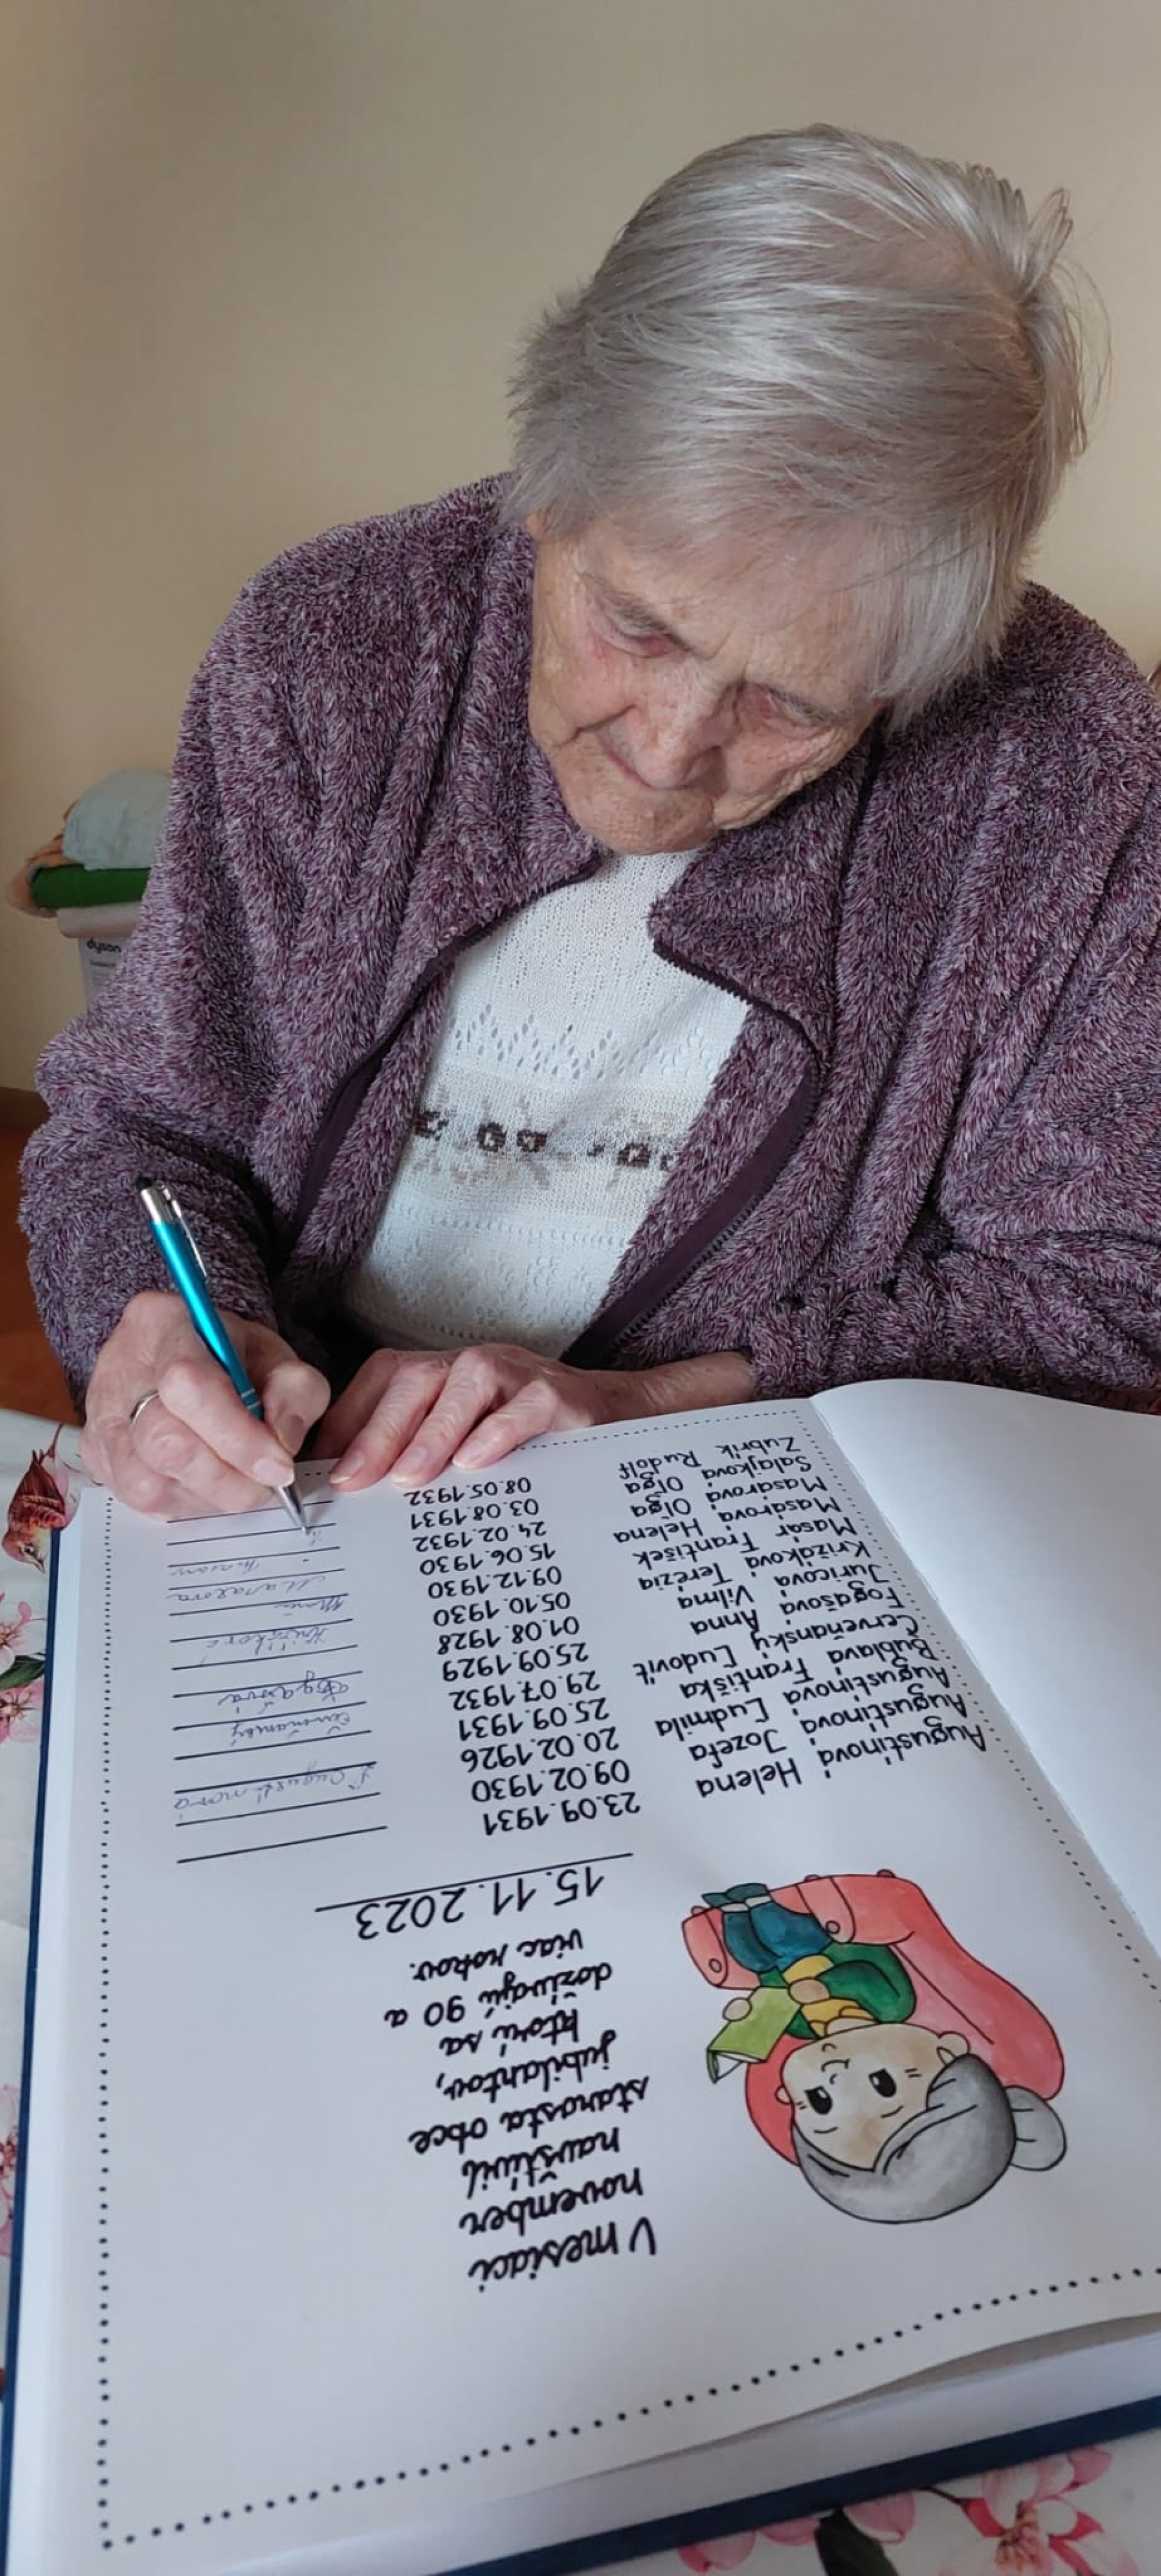 V mesiaci
november
navštívil
starosta obce
jubilantov,
ktorí sa
dožívajú 90 a
viac rokov.
15. 11. 2023
Augustínová Helena 23.09.1931
Augustínová Jozefa 09.02.1930 J Augustínová
Augustínová Ľudmila 20.02.1926
Bublavá Františka 25.09.1931
Červeňanský Ľudovít 29.07.1932 Červeňanský
Fogašová Anna 25.09.1929 Fogašová
Juricová Vilma 01.08.1928
Križáková Terézia 05.10.1930 Križáková
Masár František 09.12.1930
Masárová Helena 15.06.1930 Masarova
Masárová Oľga 24.02.1932
Salajková Oľga 03.08.1931
Zubrík Rudolf 08.05.1932
dyson